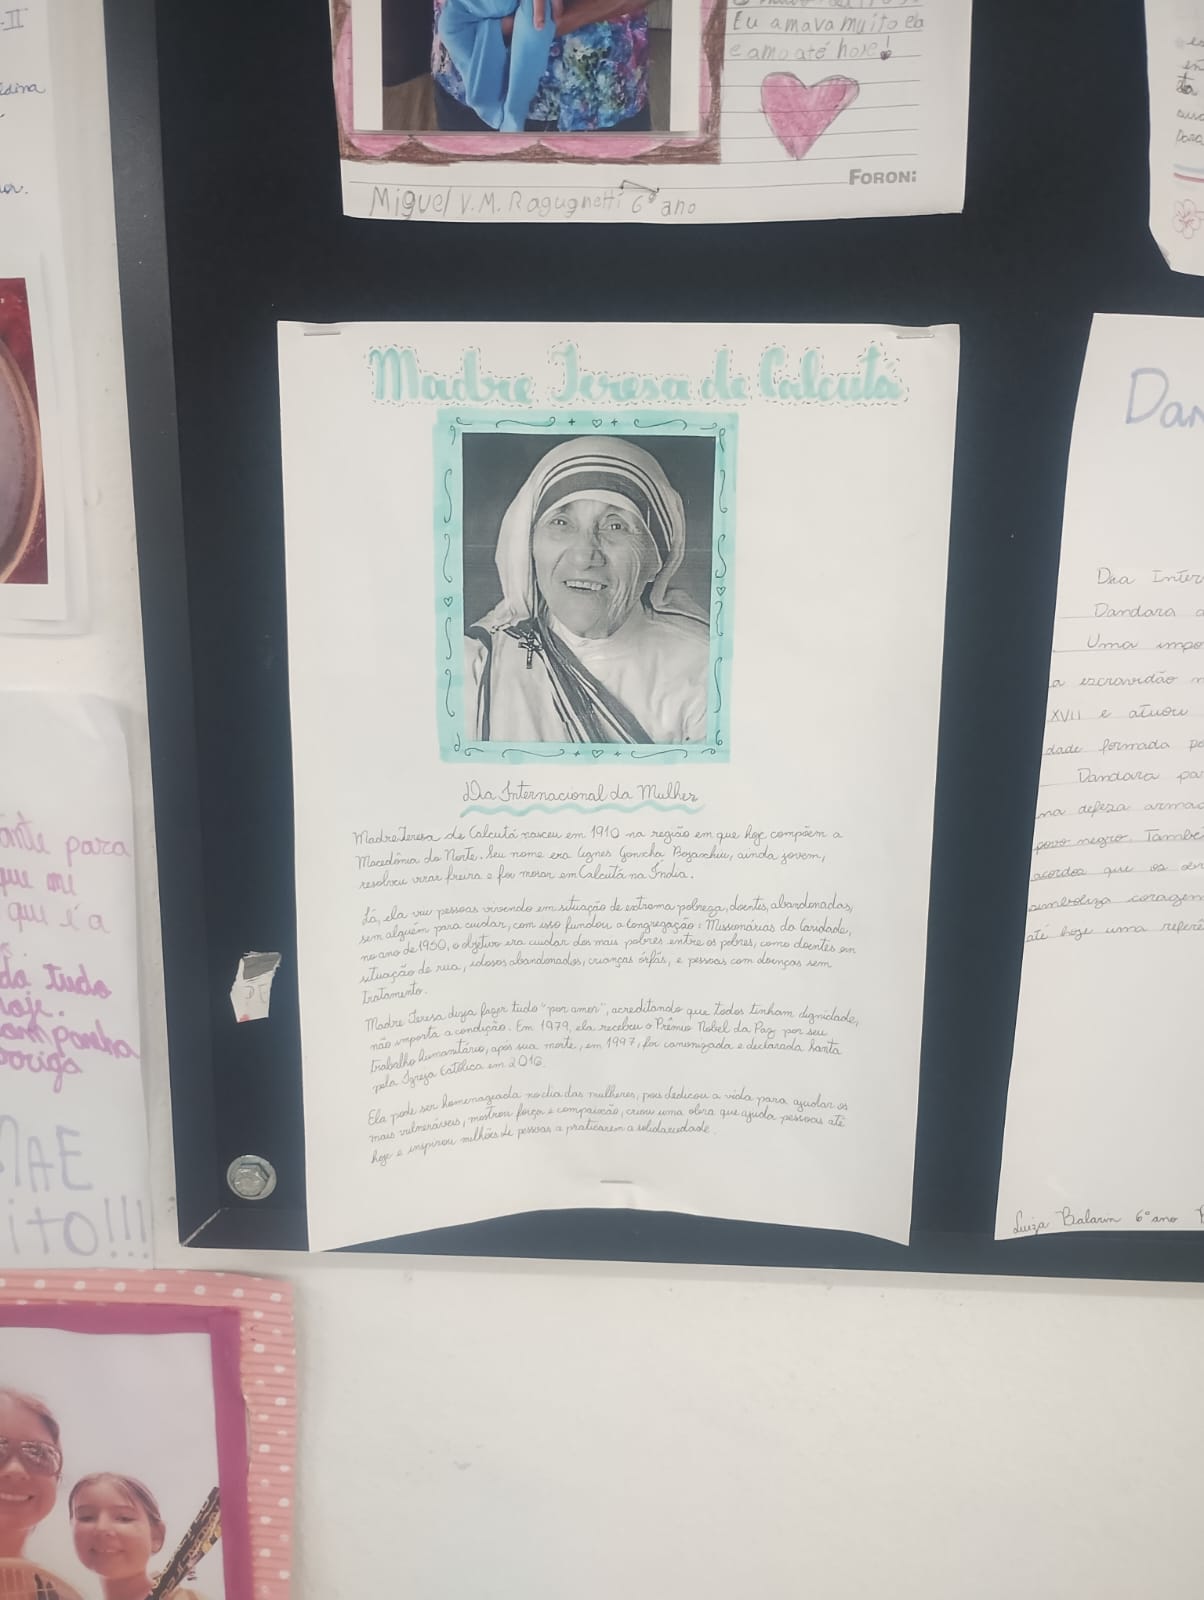 -II
Eu amava muito ela
e amo até hoje!
FORONI
Miguel V. M. Ragugnetti 6º ano
Madre Teresa de Calcutá
Dia Internacional da Mulher
Madre Teresa de Calcutá nasceu em 1910 na região em que hoje compõem a
Macedônia do Norte. Seu nome era Agnes Gonxha Bojaxhiu, ainda jovem,
resolveu virar freira e foi morar em Calcutá na Índia.
Lá, ela viu pessoas vivendo em situação de extrema pobreza, doentes, abandonadas,
sem alguém para cuidar, com isso fundou a congregação: Missionárias da Caridade,
no ano de 1950, o objetivo era cuidar dos mais pobres entre os pobres, como doentes em
situação de rua, idosos abandonados, crianças órfãs, e pessoas com doenças sem
tratamento.
Madre Teresa dizia fazer tudo "por amor", acreditando que todos tinham dignidade,
não importa a condição. Em 1979, ela recebeu o Prêmio Nobel da Paz por seu
trabalho humanitário, após sua morte, em 1997, foi canonizada e declarada santa
pela Igreja Católica em 2016.
Ela pode ser homenageada no dia das mulheres, pois dedicou a vida para ajudar os
mais vulneráveis, mostrou força e compaixão, criou uma obra que ajuda pessoas até
hoje e inspirou milhões de pessoas a praticarem a solidariedade.
Dan
Dia Inter
Dandara
Uma impo
a escravidão
XVII e atuou
dade formada po
Dandara par
na defeza armad
povo negro. També
acordos que os
simboliza coragem
até hoje uma referê
Luiza Balarin 6º ano
para
que
que é a
tudo
hoje.
MÃE
ito!!!